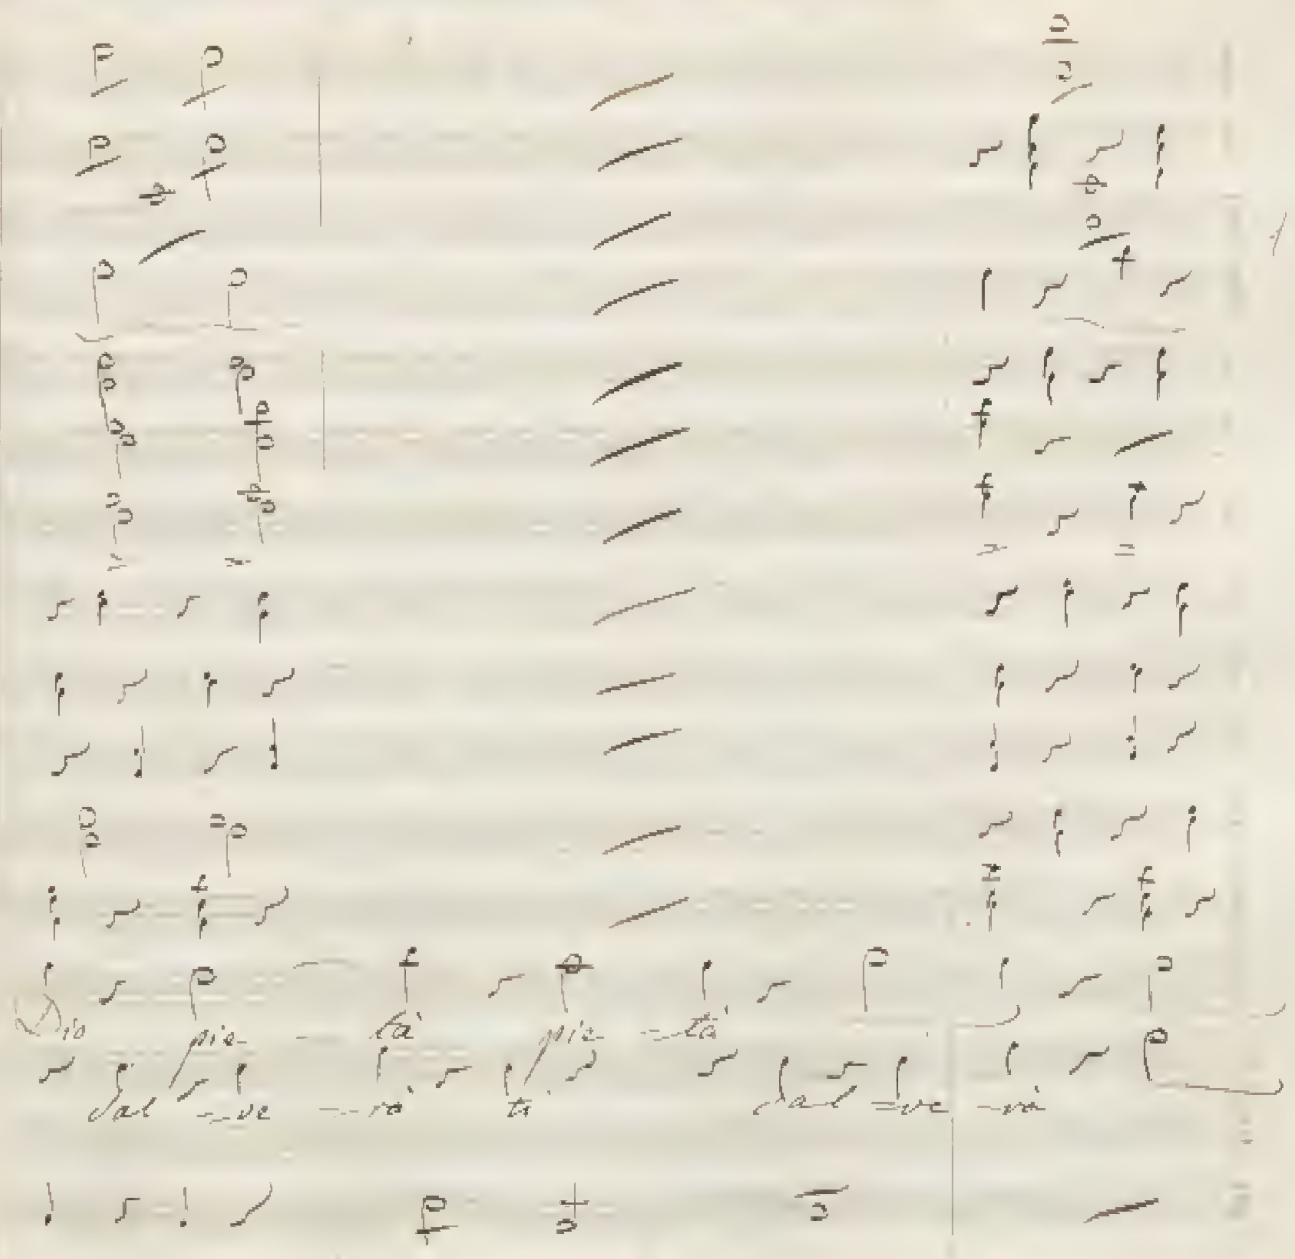 Dio pie- -tà pie- -tà
sal -ve -rà ti sal -ve -rà